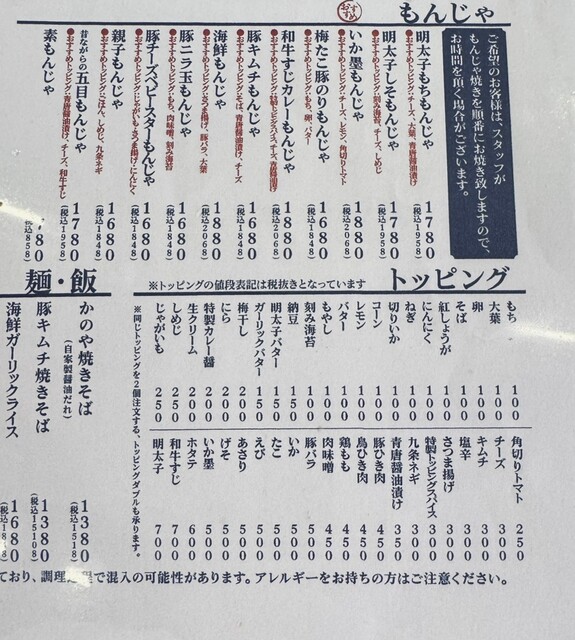 もんじゃ
おすすめ
ご希望のお客様は、スタッフが
もんじゃ焼きを順番にお焼き致しますので、
お時間を頂く場合がございます。
明太子もちもんじゃ 1780 (税込1958)
●おすすめトッピング・チーズ、大葉、青唐醤油漬け
明太子しそもんじゃ 1780 (税込1958)
●おすすめトッピング・刻み海苔、チーズ、しめじ
いか墨もんじゃ 1880 (税込2068)
●おすすめトッピング・チーズ、レモン、角切りトマト
梅たこ豚のりもんじゃ 1680 (税込1848)
●おすすめトッピング・もち、卵、バター
和牛すじカレーもんじゃ 1880 (税込2068)
●おすすめトッピング・特製トッピングスパイス、チーズ、青唐醤油漬け
豚キムチもんじゃ 1680 (税込1848)
●おすすめトッピング・そば、青唐醤油漬け、チーズ
海鮮もんじゃ 1880 (税込2068)
●おすすめトッピング・さつま揚げ、豚バラ、大葉
豚ニラ玉もんじゃ 1680 (税込1848)
●おすすめトッピング・もち、肉味噌、刻み海苔
豚チーズベビースターもんじゃ 1680 (税込1848)
●おすすめトッピング・じゃがいも、さつま揚げ、にんにく
親子もんじゃ 1680 (税込1848)
●おすすめトッピング・ごはん、しめじ、九条ネギ
昔ながらの五目もんじゃ 1780 (税込1958)
●おすすめトッピング・青唐醤油漬け、チーズ、和牛すじ
素もんじゃ 780 (税込858)
トッピング
※トッピングの値段表記は税抜きとなっています
もち 100
大葉 100
卵 100
そば 100
紅しょうが 100
にんにく 100
ねぎ 100
切りいか 100
コーン 100
レモン 100
バター 100
もやし 100
刻み海苔 100
納豆 150
明太子バター 150
ガーリックバター 150
梅干し 200
にら 200
特製カレー醤 200
生クリーム 200
しめじ 250
じゃがいも 250
角切りトマト 250
チーズ 300
キムチ 300
塩辛 300
さつま揚げ 300
特製トッピングスパイス 300
九条ネギ 300
青唐醤油漬け 300
豚ひき肉 450
鳥ひき肉 450
鶏もも 450
肉味噌 450
豚バラ 500
いか 500
たこ 500
えび 500
あさり 500
げそ 500
いか墨 500
ホタテ 600
和牛すじ 700
明太子 700
※同じトッピングを2個注文する、トッピングダブルも承ります。
麺・飯
かのや焼きそば 1380 (税込1518)
(自家製醤油だれ)
豚キムチ焼きそば 1380 (税込15108)
海鮮ガーリックライス 1680
ており、調理 程で混入の可能性があります。アレルギーをお持ちの方はご注意ください。